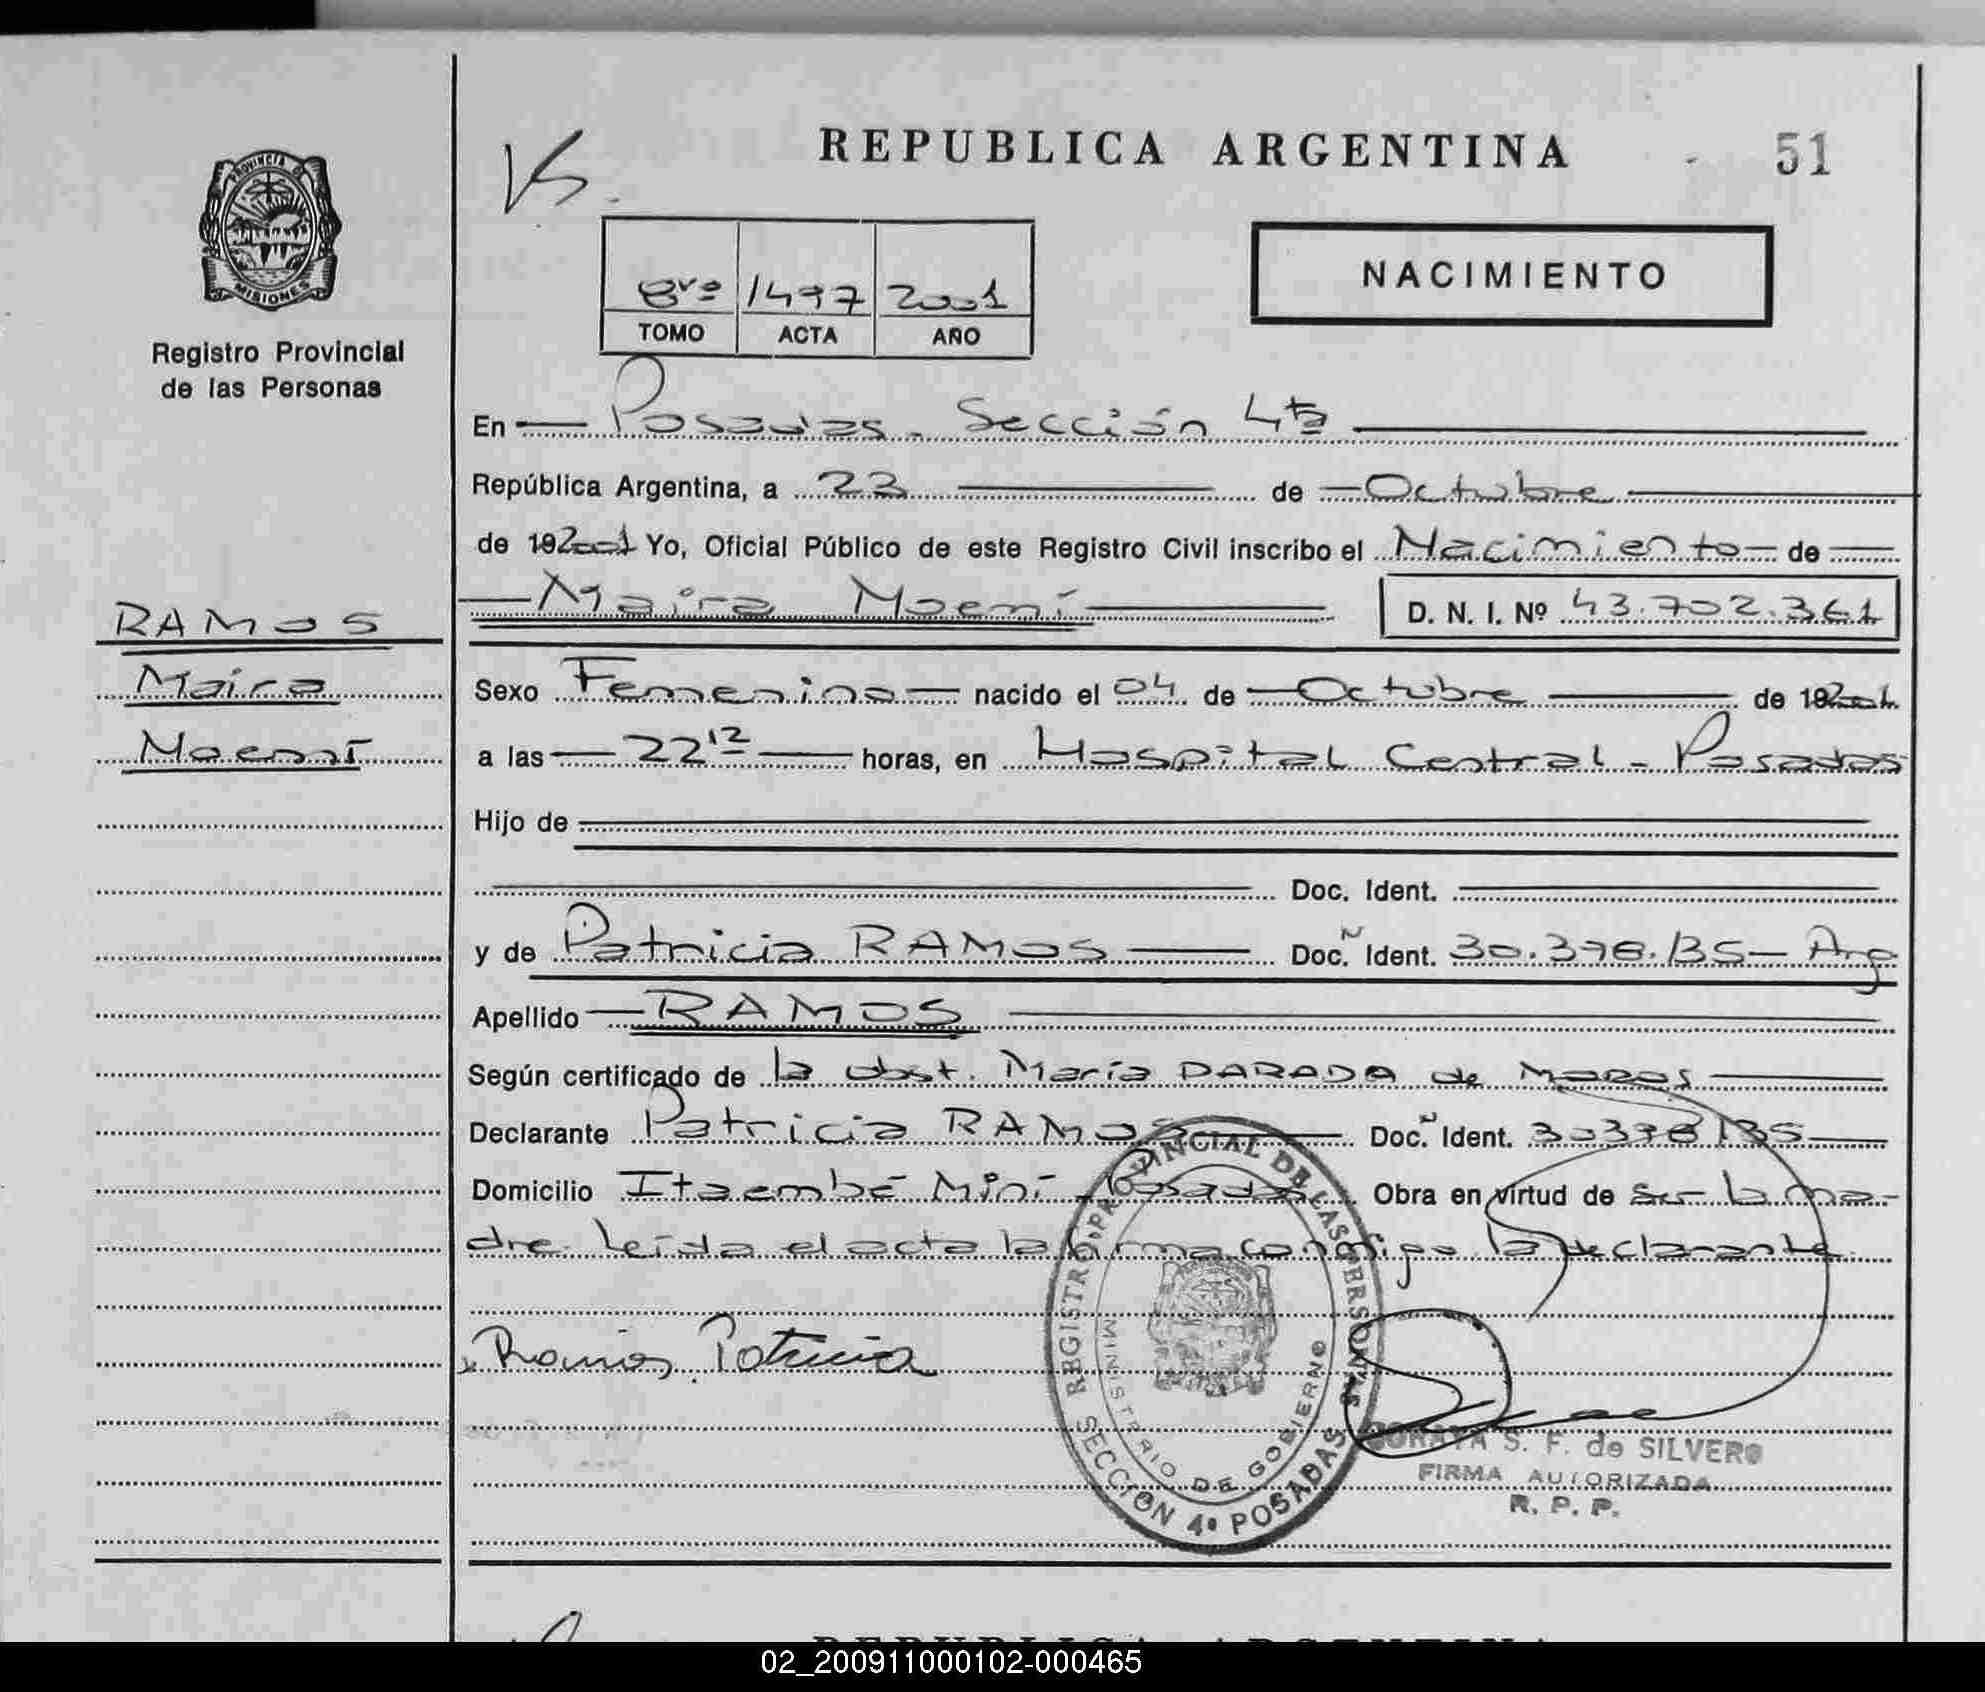 REPUBLICA ARGENTINA
51
Vs.
PROVINCIA DE
MISIONES
Registro Provincial
de las Personas
8vo 1497 2001
TOMO ACTA AÑO
NACIMIENTO
En Posadas - Sección 4ta
República Argentina, a 23 de Octubre
de 192001 Yo, Oficial Público de este Registro Civil inscribo el Nacimiento de
Maira Noemí
D. N. I. Nº 43.702.361
RAMOS
Maira
Noemí
Sexo Femenino nacido el 04 de Octubre de 192001
a las 22 12 horas, en Hospital Central - Posadas
Hijo de
Doc. Ident.
y de Patricia RAMOS Doc. N Ident. 30.398.135 - Arg
Apellido RAMOS
Según certificado de la obst. María PARADA de
Declarante Patricia RAMOS Doc. N Ident. 30398135
Domicilio Itaembé Miní - Posadas Obra en virtud de ser la ma-
dre. Leída el acta la firma conmigo la declarante
Ramos Patricia
REGISTRO PROVINCIAL DE LAS PERSONAS
MINISTERIO DE GOBIERNO
SECCION 4ª POSADAS
SORAYA S. F. de SILVERO
FIRMA AUTORIZADA
R. P. P.
REPUBLICA ARGENTINA
02_200911000102-000465